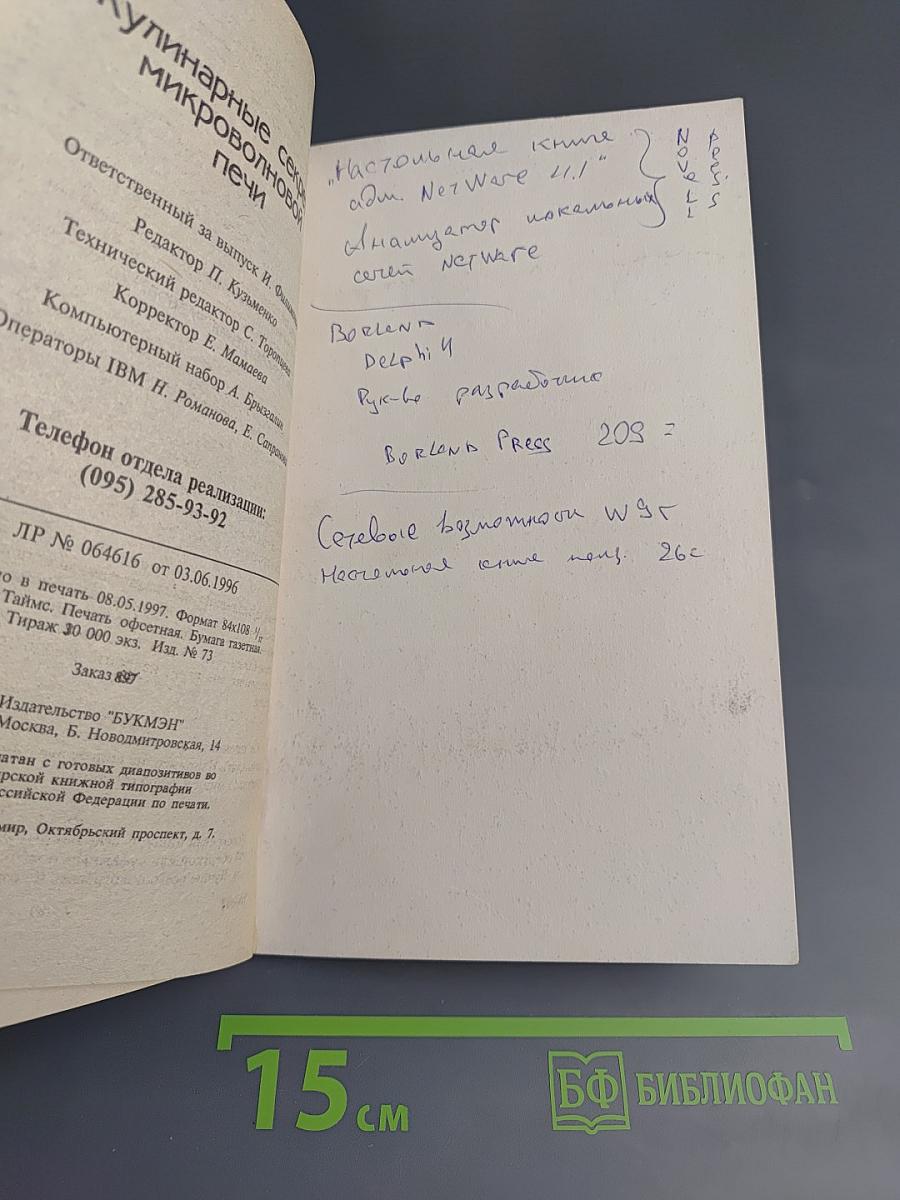 Кулинарные секре
микроволновой
печи
Ответственный за выпуск И.
Редактор П. Кузьменко
Технический редактор С. Торопцева
Корректор Е. Мамаева
Компьютерный набор А. Брызгалин
Операторы IBM Н. Романова, Е.
Телефон отдела реализации:
(095) 285-93-92
ЛР № 064616 от 03.06.1996
о в печать 08.05.1997. Формат 84х108
Таймс. Печать офсетная. Бумага газетная.
Тираж 30 000 экз. Изд. № 73
Заказ
Издательство "БУКМЭН"
Москва, Б. Новодмитровская, 14
атан с готовых диапозитивов во
рской книжной типографии
ссийской Федерации по печати.
мир, Октябрьский проспект, д. 7.
"Настольная книга
адм. NetWare 4.1"
Анализатор локальных
сетей NetWare
Novell Press
Borland
Delphi 4
Рук-во разработчика
Borland Press 209 =
Сетевые возможности W95
Настольная книга польз.
15 см
БФ БИБЛИОФАН